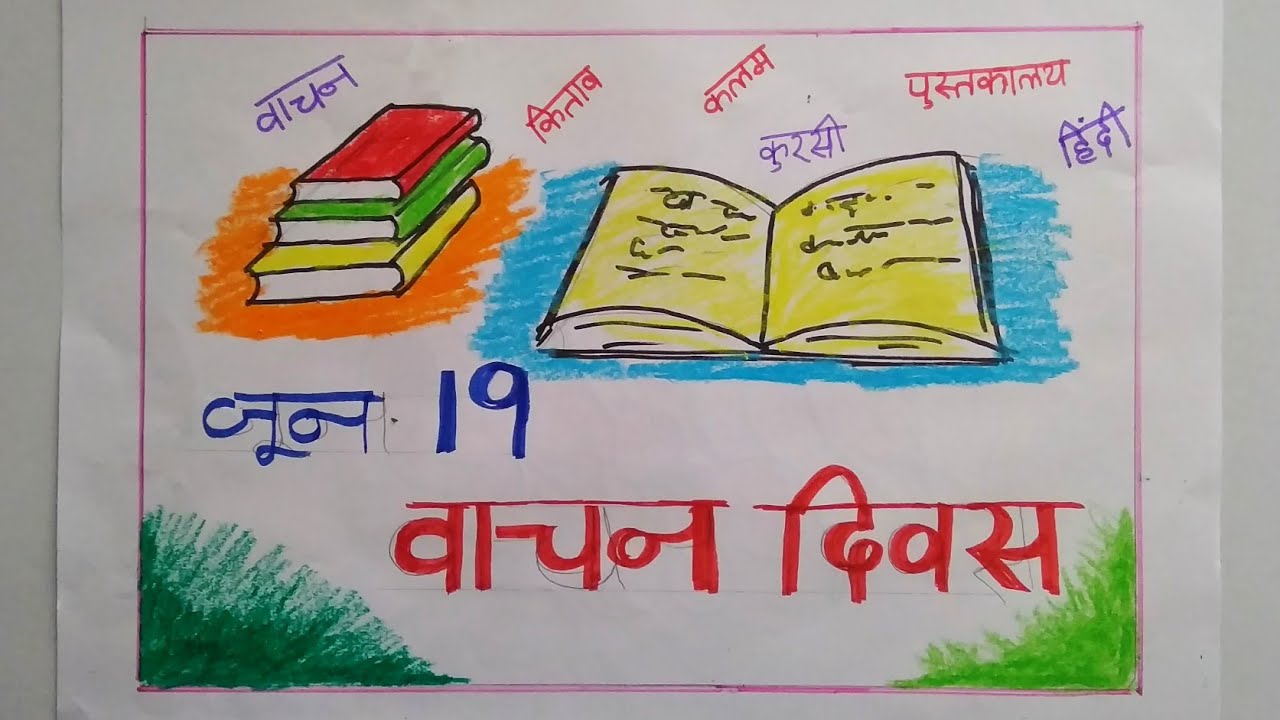 वाचन
किताब
कलम
पुस्तकालय
कुरसी
हिंदी
जून 19
वाचन दिवस